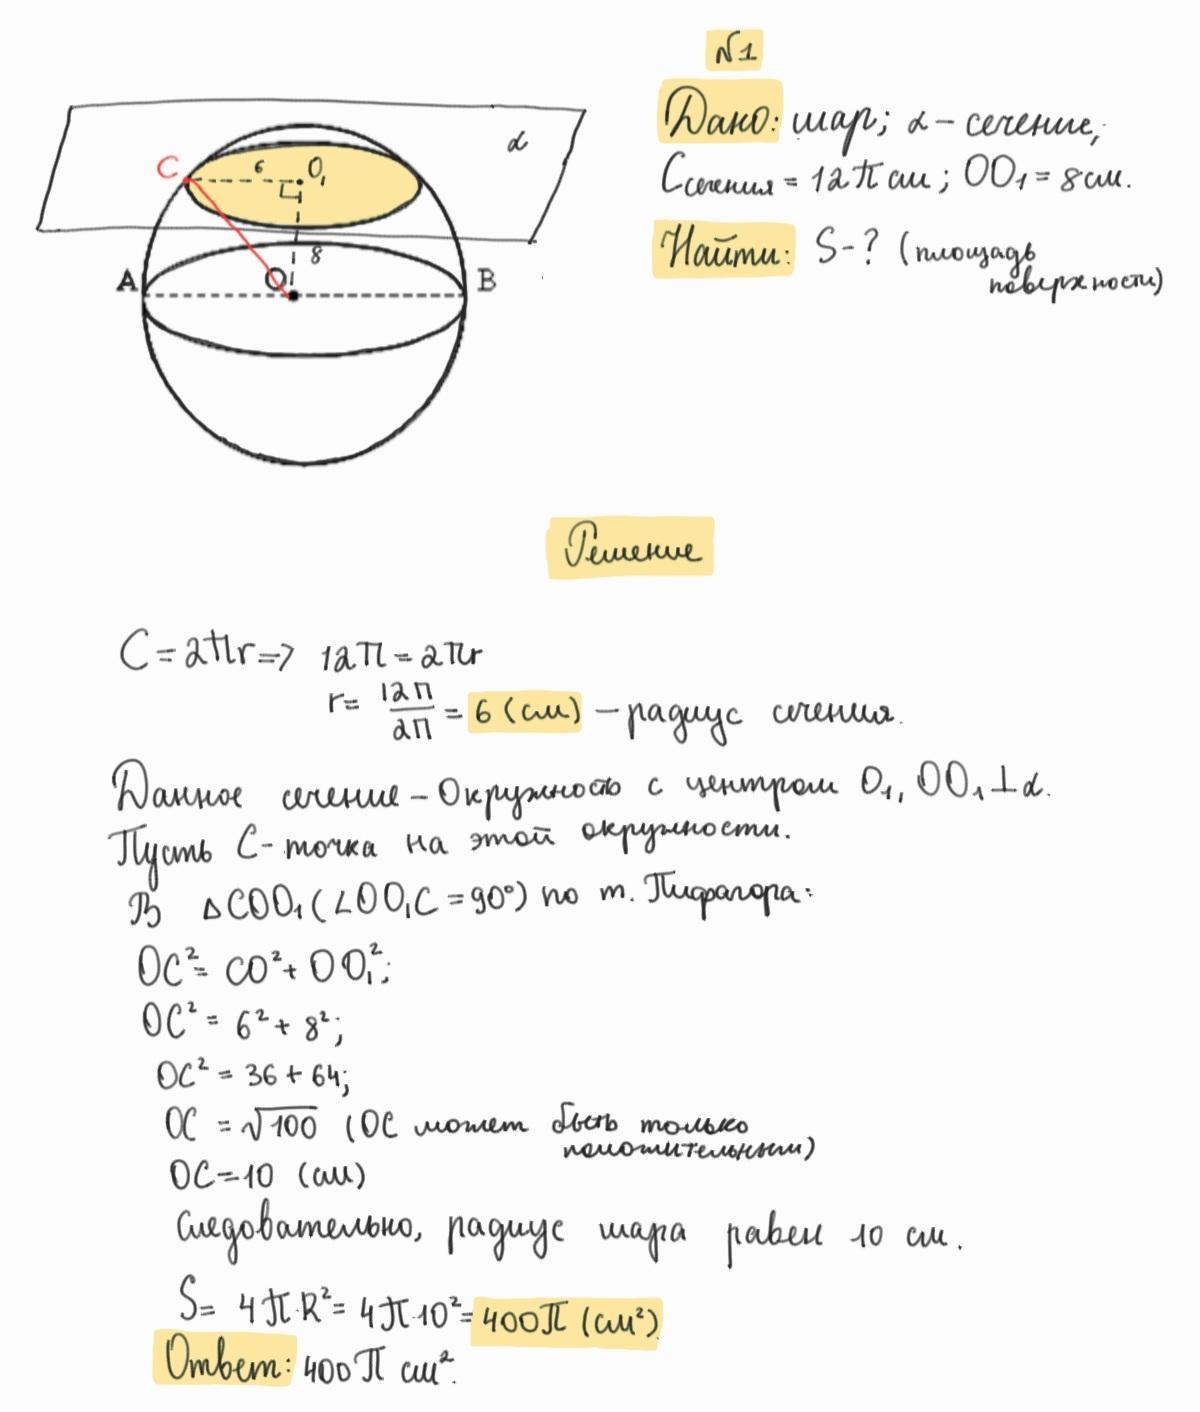 N1
Дано: шар; α - сечение,
Cсечения = 12π см; OO₁ = 8 см.
Найти: S - ? (площадь
поверхности)
α
C
6
O₁
8
A
O
B
Решение
C = 2πr => 12π = 2πr
r = 12π/2π = 6 (см) - радиус сечения.
Данное сечение - Окружность с центром O₁, OO₁ ⊥ α.
Пусть C - точка на этой окружности.
В △COO₁ (∠OO₁C = 90°) по т. Пифагора:
OC² = CO² + OO₁²;
OC² = 6² + 8²;
OC² = 36 + 64;
OC = √100 (OC может быть только
положительным)
OC = 10 (см)
Следовательно, радиус шара равен 10 см.
S = 4π·R² = 4π·10² = 400π (см²).
Ответ: 400π см².